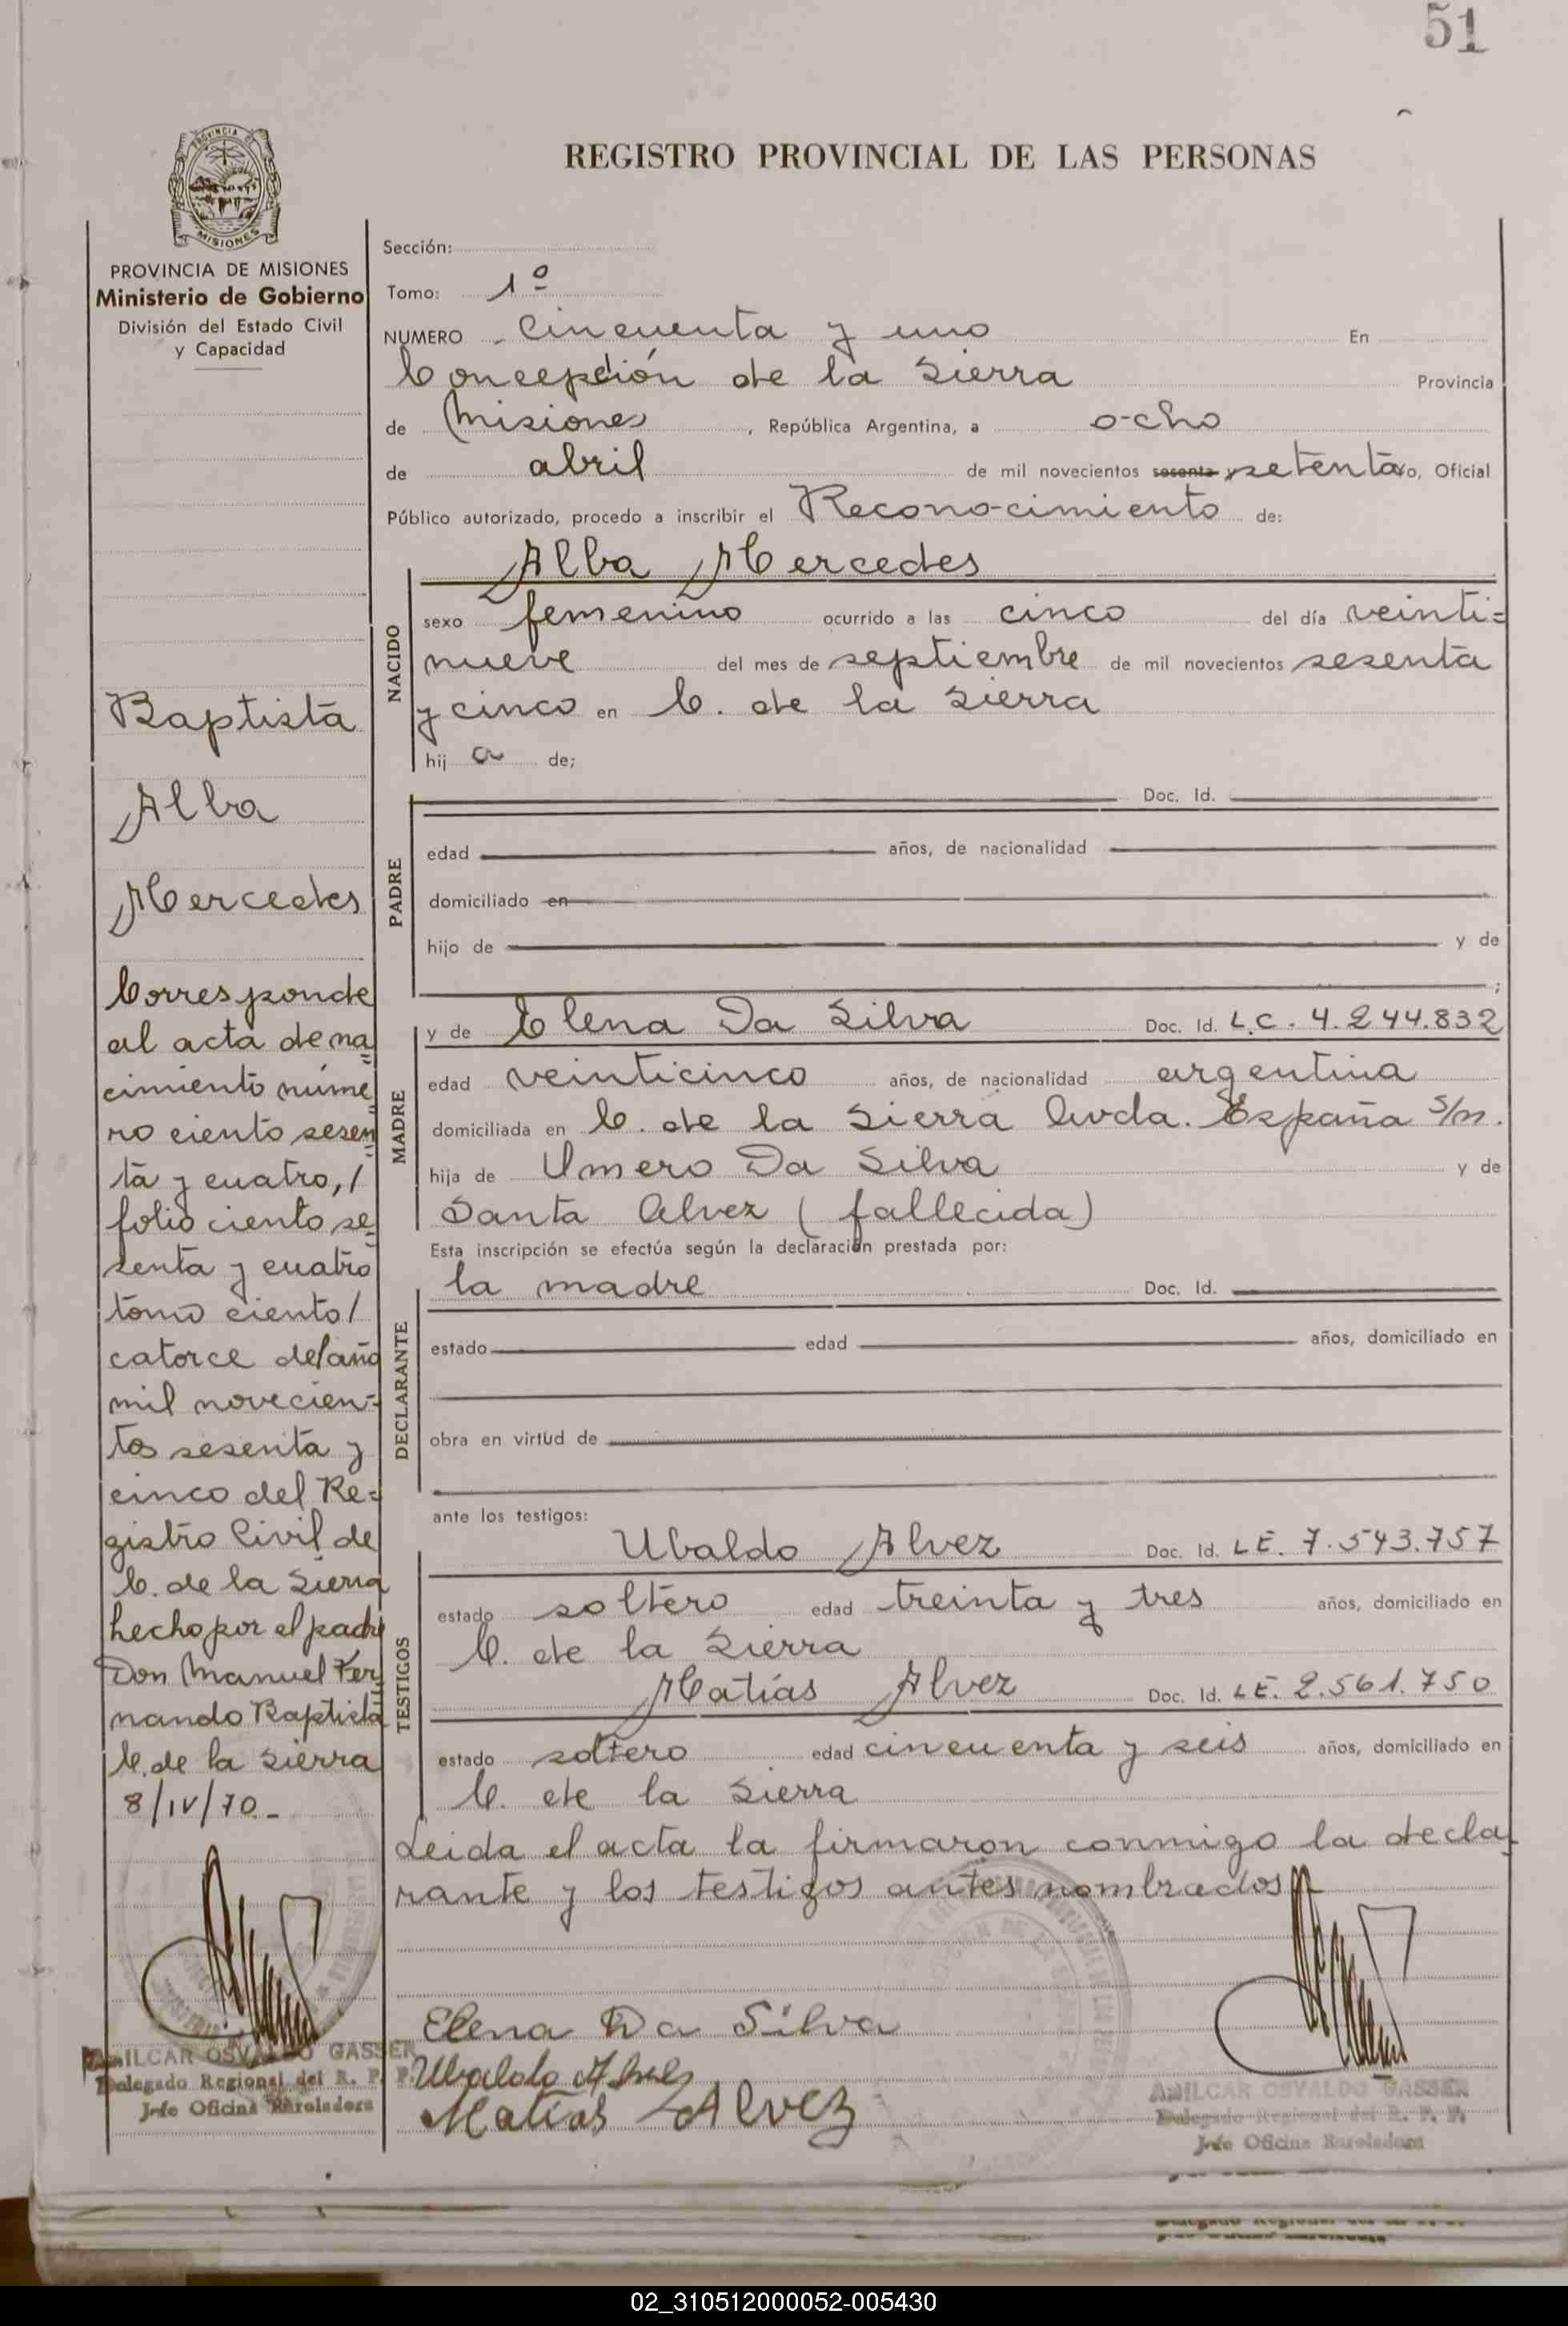 51
REGISTRO PROVINCIAL DE LAS PERSONAS
PROVINCIA DE MISIONES
Ministerio de Gobierno
División del Estado Civil
y Capacidad
Baptista
Alba
Mercedes
Corresponde
al acta de na=
cimiento núme=
ro ciento sesen=
ta y cuatro, /
folio ciento se=
senta y cuatro
tomo ciento /
catorce del año
mil novecien=
tos sesenta y
cinco del Re=
gistro Civil de
C. de la Sierra
hecho por el padre
Don Manuel Fer
nando Baptista
C. de la Sierra
8/IV/70.-
AMILCAR OSVALDO GASSER
Delegado Regional del R. P. P.
Jefe Oficina
Sección:
Tomo: 1º
NUMERO cincuenta y uno En
Concepción de la Sierra Provincia
de Misiones, República Argentina, a ocho
de abril de mil novecientos sesenta setenta yo, Oficial
Público autorizado, procedo a inscribir el Reconocimiento de:
NACIDO
Alba Mercedes
sexo femenino ocurrido a las cinco del día veinti=
nueve del mes de septiembre de mil novecientos sesenta
y cinco en C. de la Sierra
hij a de;
PADRE
Doc. Id.
edad años, de nacionalidad
domiciliado en
hijo de y de
;
MADRE
y de Elena Da Silva Doc. Id. L.C. 4.244.832
edad veinticinco años, de nacionalidad argentina
domiciliada en C. de la Sierra Avda. España s/n.
hija de Umero Da Silva y de
Santa Alvez (fallecida)
Esta inscripción se efectúa según la declaración prestada por:
DECLARANTE
la madre Doc. Id.
estado edad años, domiciliado en
obra en virtud de
ante los testigos:
TESTIGOS
Ubaldo Alvez Doc. Id. L.E. 7.543.757
estado soltero edad treinta y tres años, domiciliado en
C. de la Sierra
Matías Alvez Doc. Id. L.E. 2.561.750
estado soltero edad cincuenta y seis años, domiciliado en
C. de la Sierra
Leida el acta la firmaron conmigo la decla
rante y los testigos antes nombrados
Elena Da Silva
Ubaldo Alvez
Matias Alvez
AMILCAR OSVALDO GASSER
Delegado Regional del R. P. P.
Jefe Oficina
02_310512000052-005430